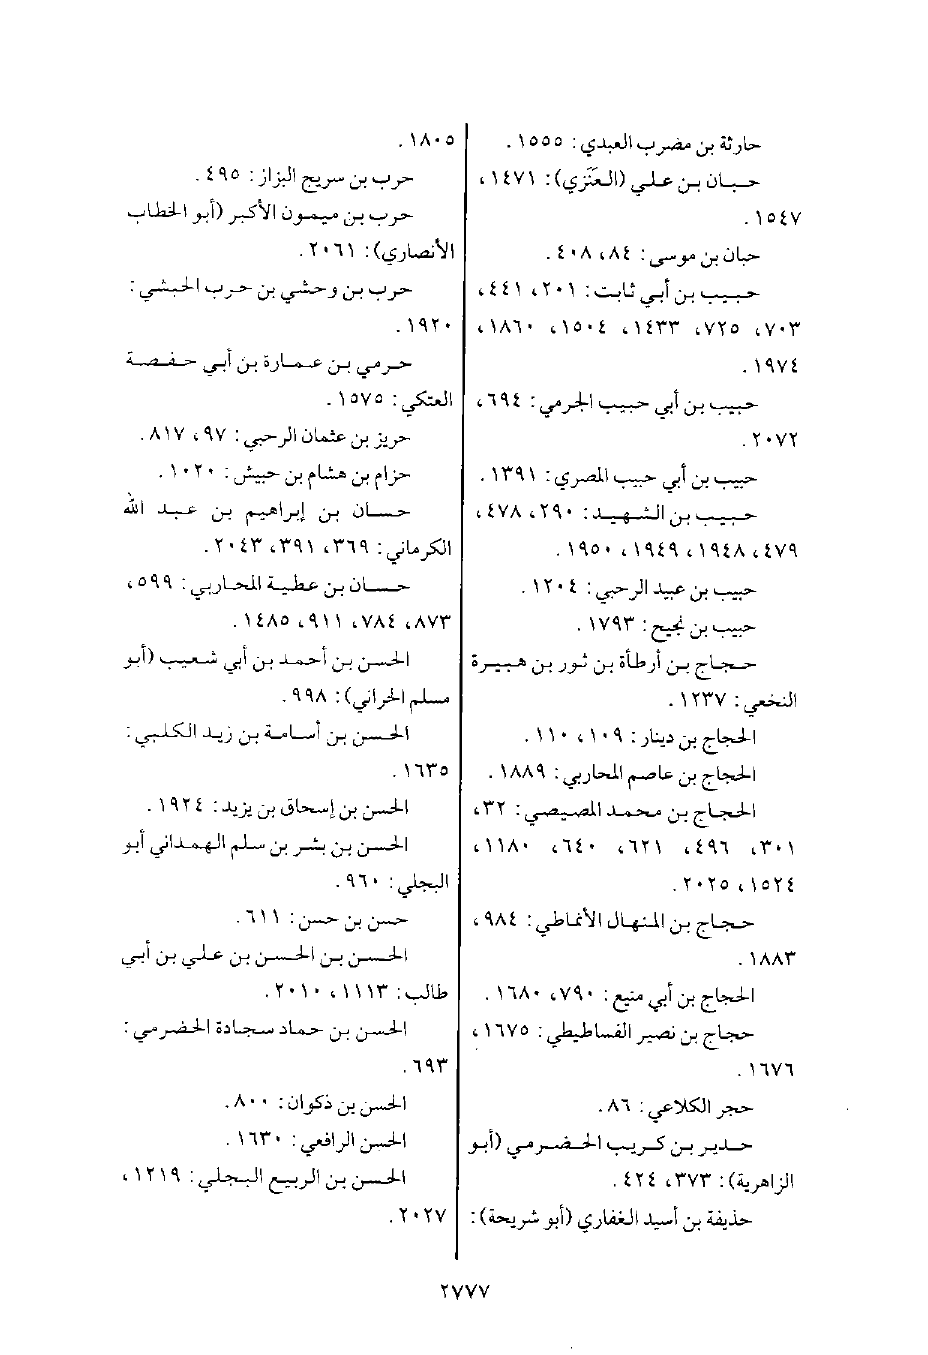 حارثة بن مضرب العبدي: ١٥٥٥.
حبان بن علي (العَنَزي): ١٤٧١،
١٥٤٧.
حبان بن موسى: ٨٤، ٤٠٨.
حبيب بن أبي ثابت: ٢٠١، ٤٤١،
٧٠٣، ٧٢٥، ١٤٣٣، ١٥٠٤، ١٨٦٠،
١٩٧٤.
حبيب بن أبي حبيب الجرمي: ٦٩٤،
٢٠٧٢.
حبيب بن أبي حبيب المصري: ١٣٩١.
حبيب بن الشهيد: ٢٩٠، ٤٧٨،
٤٧٩، ١٩٤٨، ١٩٤٩، ١٩٥٠.
حبيب بن عبيد الرحبي: ١٢٠٤.
حبيب بن نجيح: ١٧٩٣.
حجاج بن أرطأة بن ثور بن هبيرة
النخعي: ١٢٣٧.
الحجاج بن دينار: ١٠٩، ١١٠.
الحجاج بن عاصم المحاربي: ١٨٨٩.
الحجاج بن محمد المصيصي: ٣٢،
٣٠١، ٤٩٦، ٦٢١، ٦٤٠، ١١٨٠،
١٥٢٤، ٢٠٢٥.
حجاج بن المنهال الأنماطي: ٩٨٤،
١٨٨٣.
الحجاج بن أبي منيع: ٧٩٠، ١٦٨٠.
حجاج بن نصير الفساطيطي: ١٦٧٥،
١٦٧٦.
حجر الكلاعي: ٨٦.
حدير بن كريب الحضرمي (أبو
الزاهرية): ٣٧٣، ٤٢٤.
حذيفة بن أسيد الغفاري (أبو شريحة):
١٨٠٥.
حرب بن سريج البزاز: ٤٩٥.
حرب بن ميمون الأكبر (أبو الخطاب
الأنصاري): ٢٠٦١.
حرب بن وحشي بن حرب الحبشي:
١٩٢٠.
حرمي بن عمارة بن أبي حفصة
العتكي: ١٥٧٥.
حريز بن عثمان الرحبي: ٩٧، ٨١٧.
حزام بن هشام بن حبيش: ١٠٢٠.
حسان بن إبراهيم بن عبد الله
الكرماني: ٣٦٩، ٣٩١، ٢٠٤٣.
حسان بن عطية المحاربي: ٥٩٩،
٨٧٣، ٧٨٤، ٩١١، ١٤٨٥.
الحسن بن أحمد بن أبي شعيب (أبو
مسلم الحراني): ٩٩٨.
الحسن بن أسامة بن زيد الكلبي:
١٦٣٥.
الحسن بن إسحاق بن يزيد: ١٩٢٤.
الحسن بن بشر بن سلم الهمداني أبو
البجلي: ٩٦٠.
حسن بن حسن: ٦١١.
الحسن بن الحسن بن علي بن أبي
طالب: ١١١٣، ٢٠١٠.
الحسن بن حماد سجادة الحضرمي:
٦٩٣.
الحسن بن ذكوان: ٨٠٠.
الحسن الرافعي: ١٦٣٠.
الحسن بن الربيع البجلي: ١٢١٩،
٢٠٢٧.
٢٧٧٧